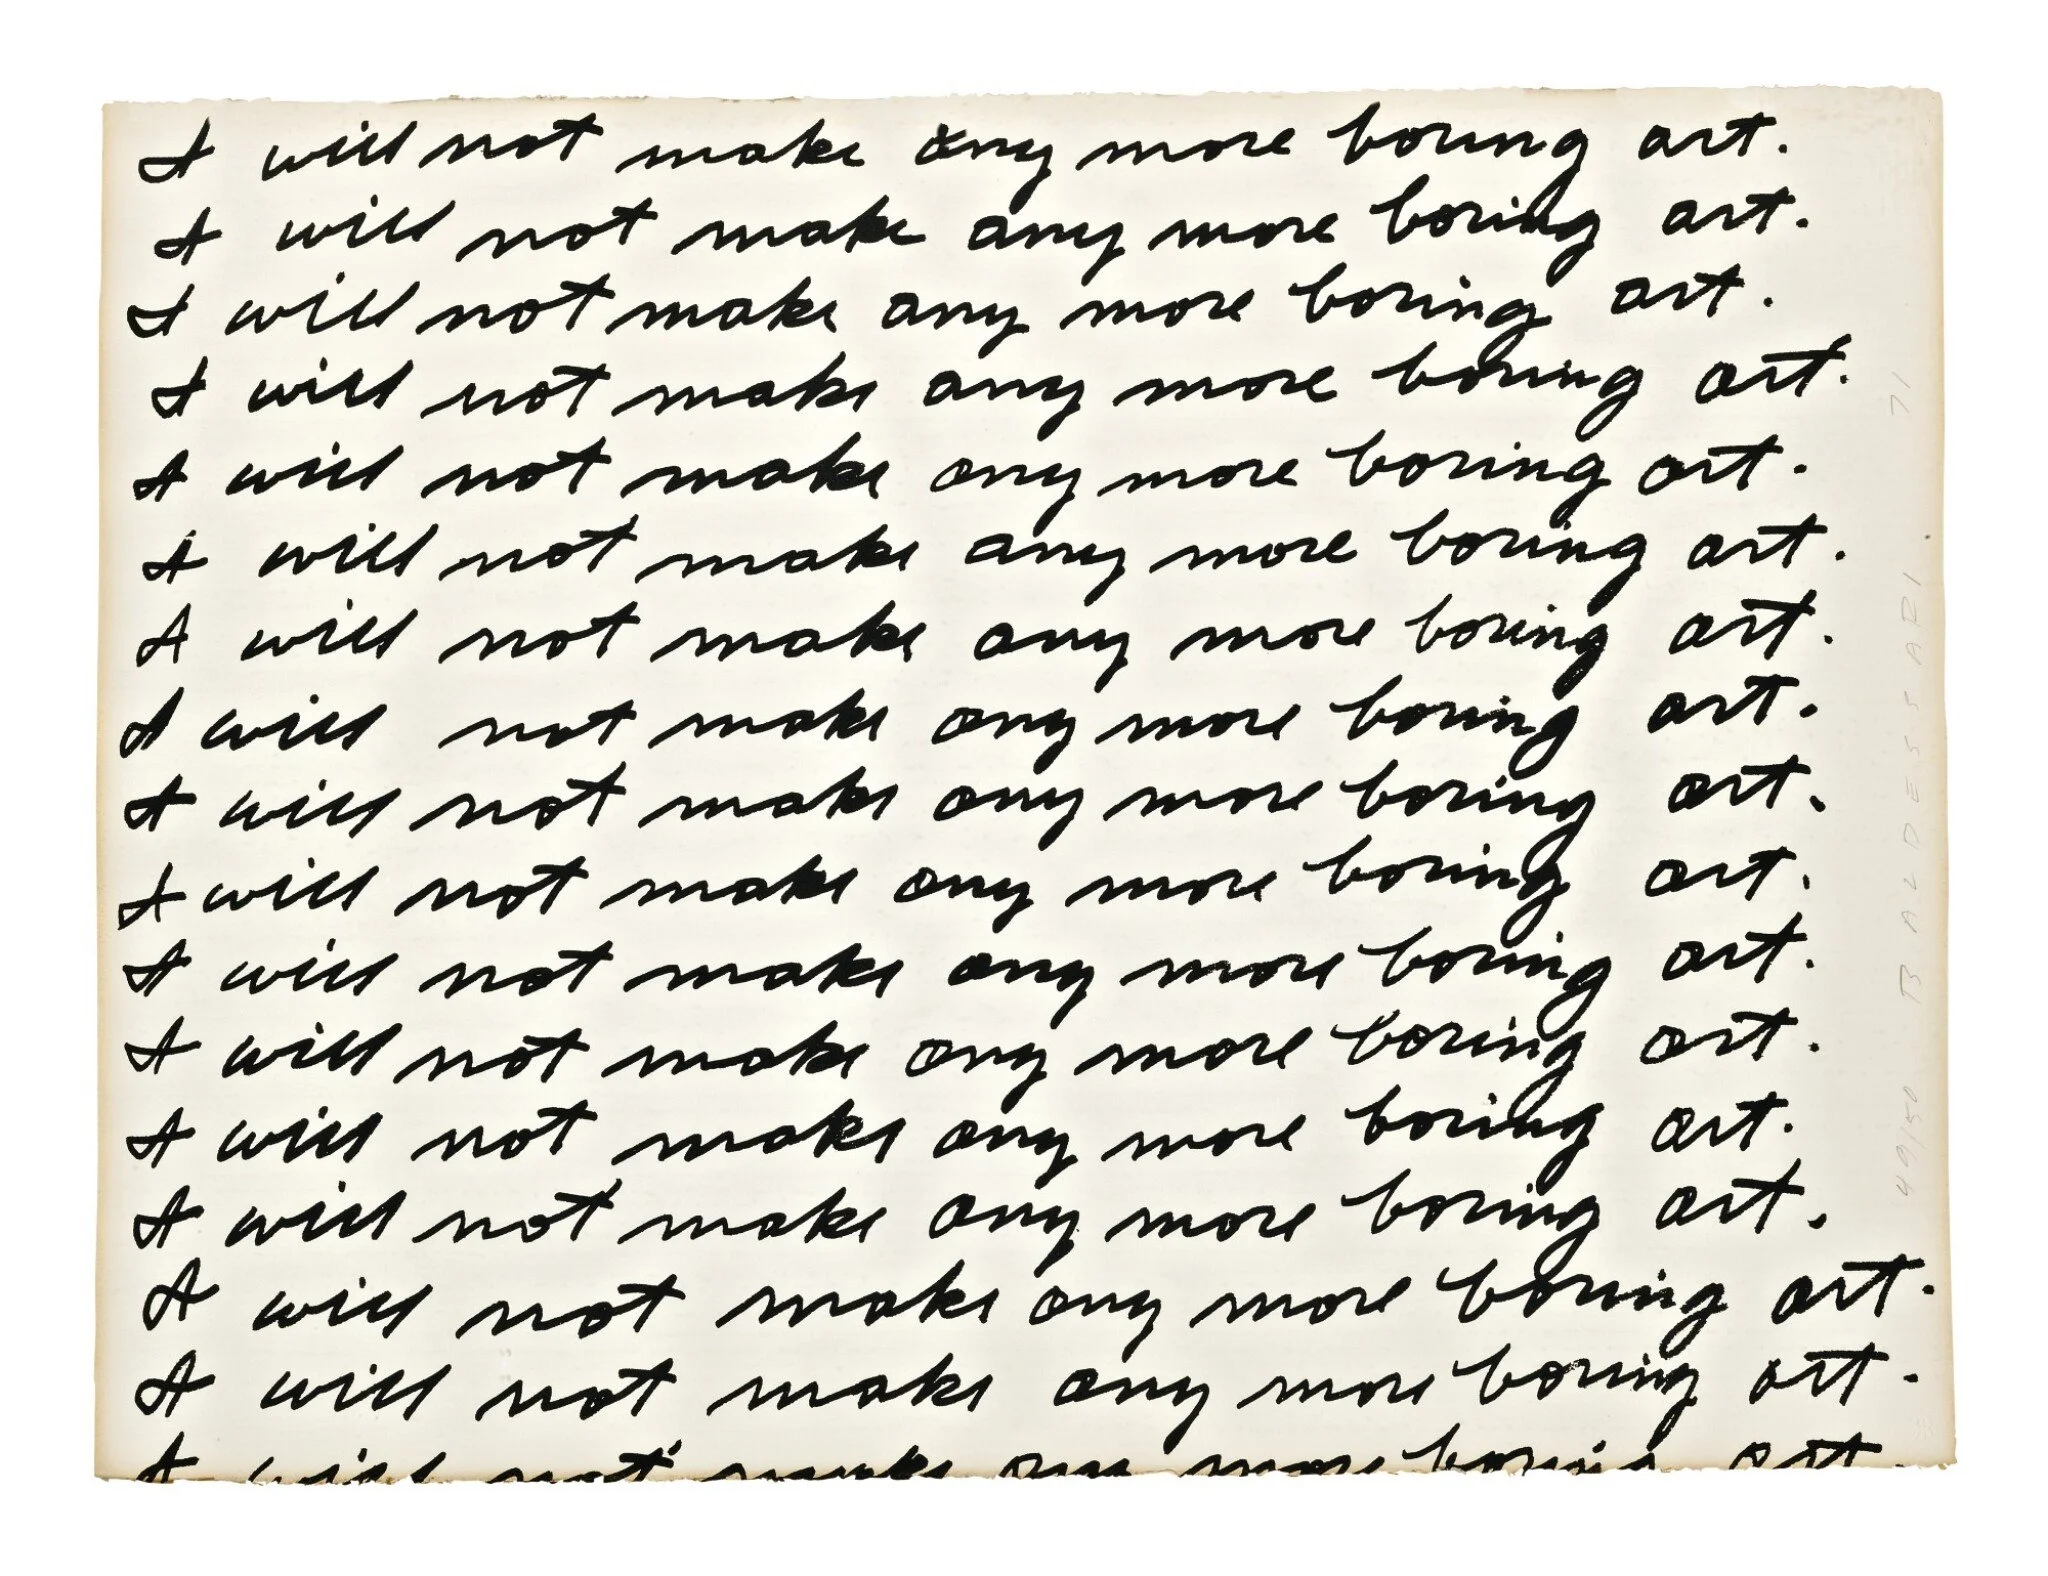 I will not make any more boring art.
I will not make any more boring art.
I will not make any more boring art.
I will not make any more boring art.
I will not make any more boring art.
I will not make any more boring art.
I will not make any more boring art.
I will not make any more boring art.
I will not make any more boring art.
I will not make any more boring art.
I will not make any more boring art.
I will not make any more boring art.
I will not make any more boring art.
I will not make any more boring art.
I will not make any more boring art.
I will not make any more boring art.
I will not make any more boring art.
49/50 BALDESSARI 71